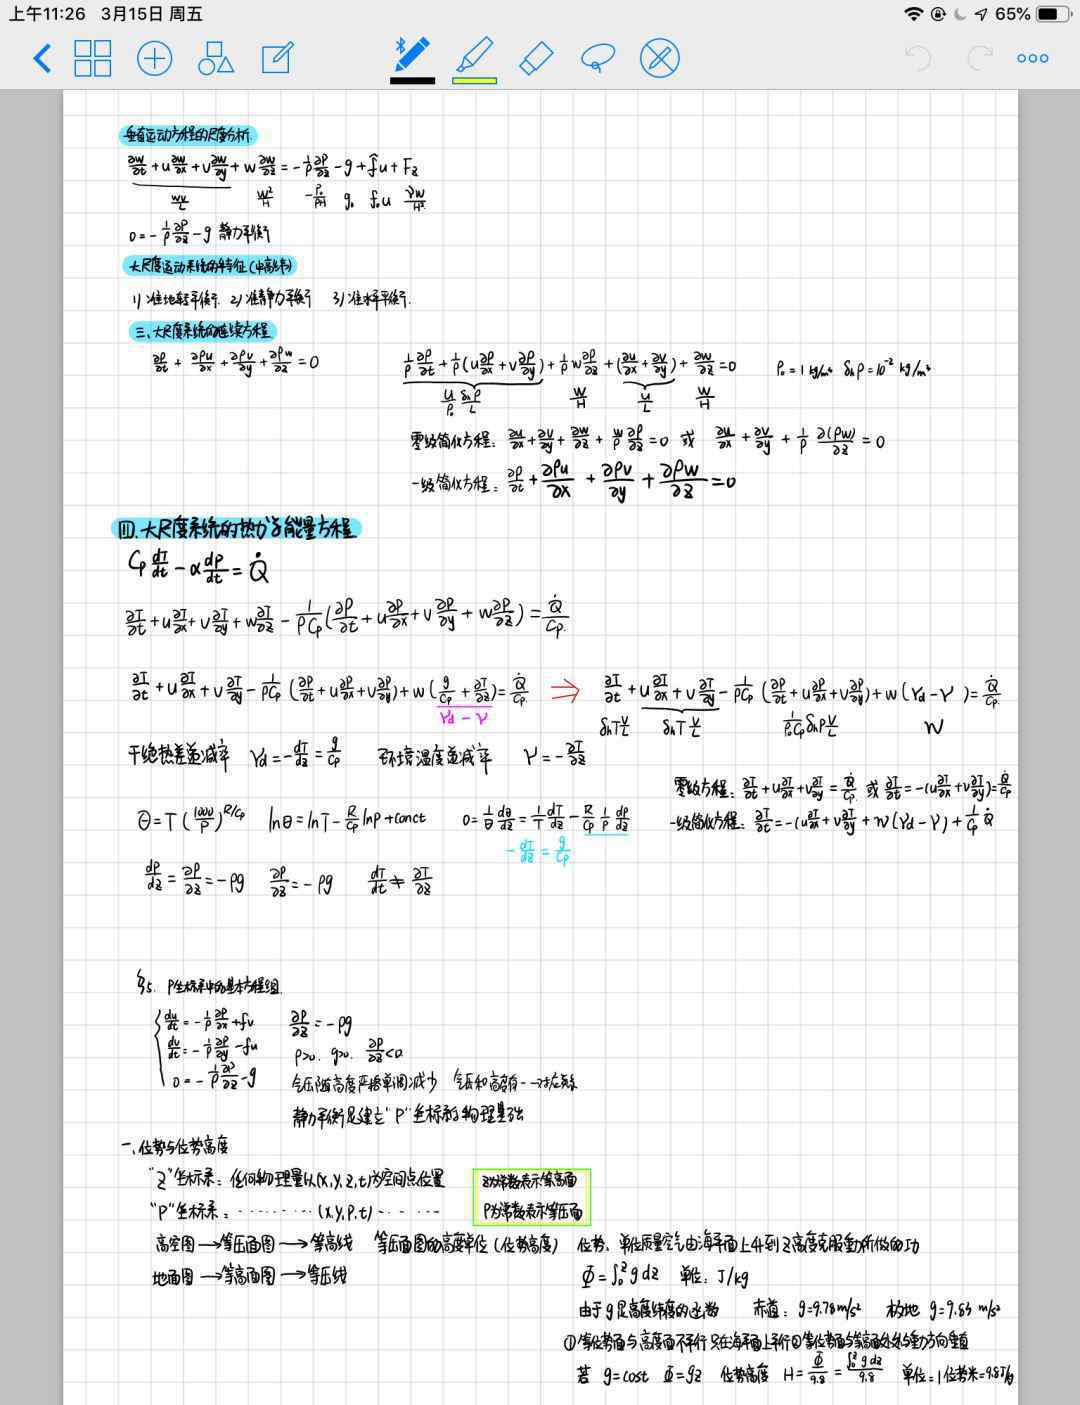 上午11:26 3月15日 周五 65%
垂直运动方程的尺度分析
∂w/∂t + u ∂w/∂x + v ∂w/∂y + w ∂w/∂z = -1/ρ ∂P/∂z - g + f̂u + Fz
WU/L W²/H -P₀/ρH g₀ f₀U νW/H²
0 = -1/ρ ∂P/∂z - g 静力平衡
大尺度运动系统的特征(中高纬)
1) 准地转平衡. 2) 准静力平衡 3) 准水平衡.
三、大尺度系统的连续方程
∂ρ/∂t + ∂ρu/∂x + ∂ρv/∂y + ∂ρw/∂z = 0 1/ρ ∂ρ/∂t + 1/ρ(u ∂ρ/∂x + v ∂ρ/∂y) + 1/ρ w ∂ρ/∂z + (∂u/∂x + ∂v/∂y) + ∂w/∂z = 0 ρ₀ = 1 kg/m³ δhρ = 10⁻² kg/m³
U/ρ₀ δhρ/L W/H U/L W/H
零级简化方程: ∂u/∂x + ∂v/∂y + ∂w/∂z + w/ρ ∂ρ/∂z = 0 或 ∂u/∂x + ∂v/∂y + 1/ρ ∂(ρw)/∂z = 0
一级简化方程: ∂ρ/∂t + ∂ρu/∂x + ∂ρv/∂y + ∂ρw/∂z = 0
四.大尺度系统的热力学能量方程
Cp dT/dt - α dp/dt = Q̇
∂T/∂t + u ∂T/∂x + v ∂T/∂y + w ∂T/∂z - 1/ρCp (∂P/∂t + u ∂P/∂x + v ∂P/∂y + w ∂P/∂z) = Q̇/Cp.
∂T/∂t + u ∂T/∂x + v ∂T/∂y - 1/ρCp (∂P/∂t + u ∂P/∂x + v ∂P/∂y) + w (g/Cp + ∂T/∂z) = Q̇/Cp ⇒ ∂T/∂t + u ∂T/∂x + v ∂T/∂y - 1/ρCp (∂P/∂t + u ∂P/∂x + v ∂P/∂y) + w (γd - γ) = Q̇/Cp
γd - γ δhT V/L δhT V/L 1/ρ₀Cp δhP V/L W
干绝热差递减率 γd = -dT/dz = g/Cp 环境温度递减率 γ = -∂T/∂z
零级方程: ∂T/∂t + u ∂T/∂x + v ∂T/∂y = Q̇/Cp. 或 ∂T/∂t = -(u ∂T/∂x + v ∂T/∂y) = Q̇/Cp
θ = T (1000/P)^R/Cp lnθ = lnT - R/Cp lnp + conct 0 = 1/θ dθ/dz = 1/T dT/dz - R/Cp 1/P dp/dz
一级简化方程: ∂T/∂t = -(u ∂T/∂x + v ∂T/∂y + w (γd - γ) + 1/Cp Q̇
-dT/dz = g/Cp
dP/dz = ∂P/∂z = -ρg ∂P/∂z = -ρg dT/dt ≠ ∂T/∂z
§5. P坐标系中的基本方程组.
du/dt = -1/ρ ∂P/∂x + fv ∂P/∂z = -ρg
dv/dt = -1/ρ ∂P/∂y - fu ρ>0. g>0. ∂P/∂z < 0
0 = -1/ρ ∂P/∂z - g 气压随高度严格单调减少 气压和高度有一一对应关系
静力平衡是建立"P"坐标系的物理基础
一.位势与位势高度
"Z"坐标系: 任何物理量以(x,y,z,t)为空间点位置 z为常数表示等高面
"P"坐标系: ········· (x,y,p,t) ·· ··· P为常数表示等压面
高空图 → 等压面图 → 等高线 等压面图的高度单位(位势高度) 位势. 单位质量空气由海平面上升到Z高度克服重力所做的功
地面图 → 等高面图 → 等压线 Φ = ∫₀ᶻ g dz 单位: J/kg
由于g是高度纬度的函数 赤道: g=9.78m/s² 极地 g=9.83 m/s²
①等位势面与高度面不平行只在海平面上平行②等位势面与等高面处处与重力方向垂直
若 g=cost Φ=gz 位势高度 H = Φ/9.8 = ∫₀ᶻ g dz/9.8 单位=1位势米=9.8J/kg